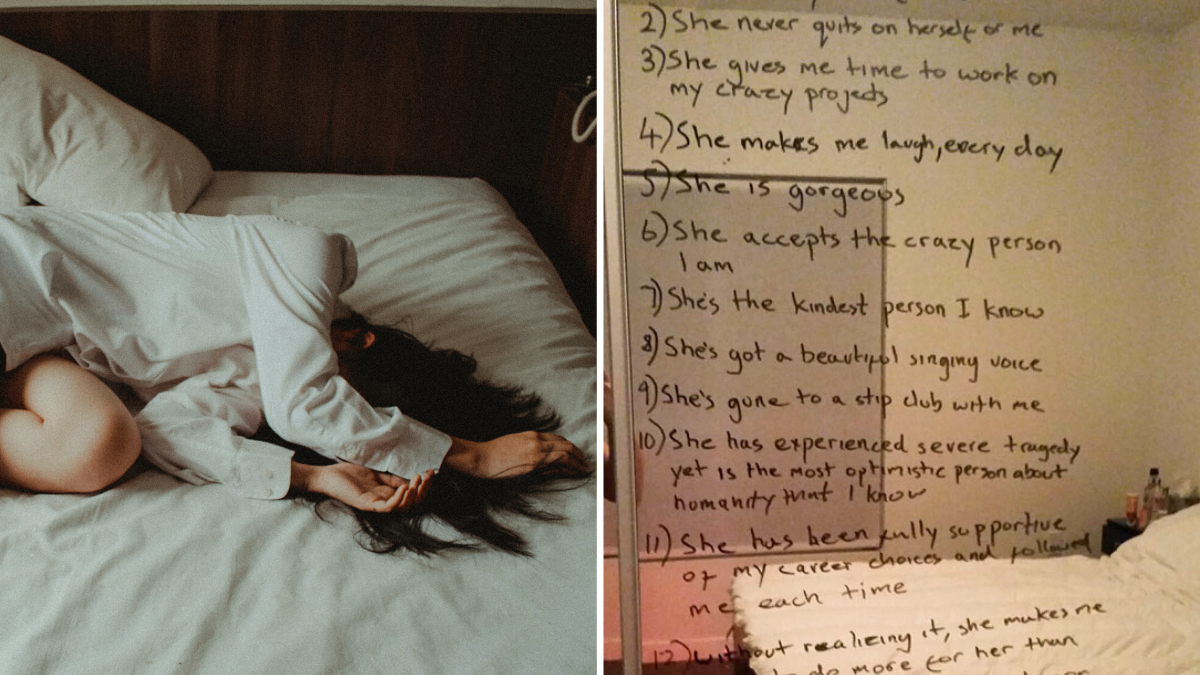 2) She never quits on herself or me
3) She gives me time to work on
my crazy projects
4) She makes me laugh, every day
5) She is gorgeous
6) She accepts the crazy person
I am
7) She's the kindest person I know
8) She's got a beautiful singing voice
9) She's gone to a strip club with me
10) She has experienced severe tragedy
yet is the most optimistic person about
humanity that I know
11) She has been fully supportive
of my career choices and followed
me each time
12) without realizing it, she makes me
do more for her than